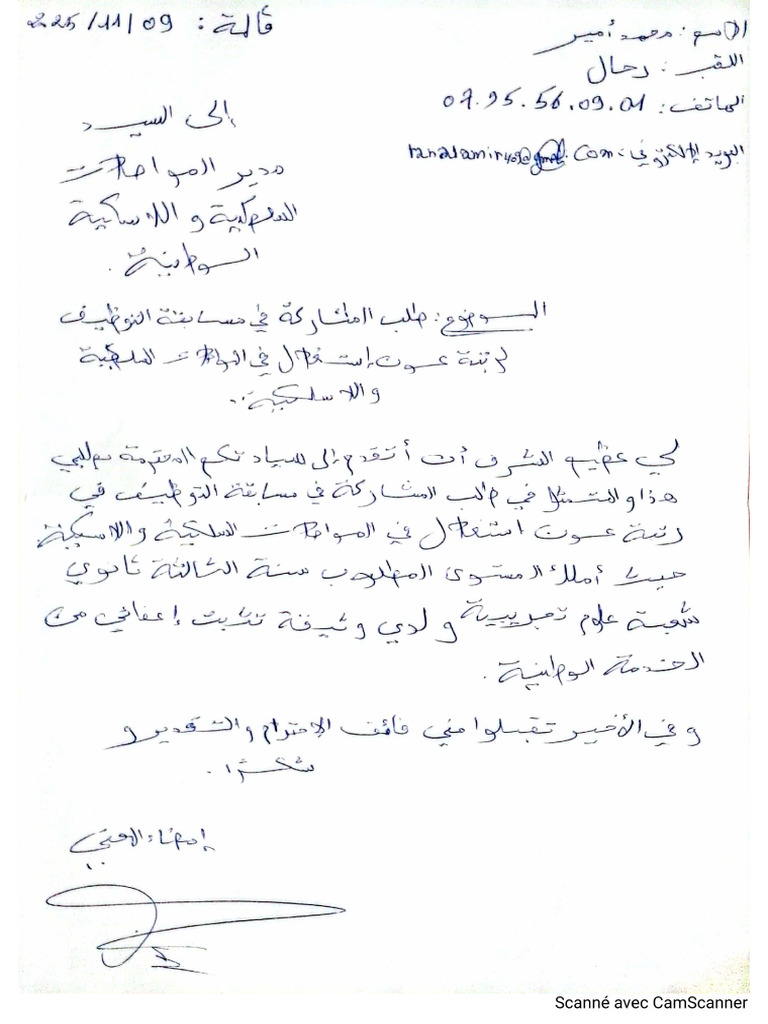 قالمة: 225/11/09
الاسم: محمد أمير
اللقب: رحال
الهاتف: 07.95.56.09.01
البريد الإلكتروني: .com
إلى السيد
مدير المواصلات
السلكية و اللاسلكية
الوطنية.
الموضوع: طلب المشاركة في مسابقة التوظيف
لرتبة عون إستغلال في المواصلات السلكية
واللاسلكية..
لي عظيم الشرف أن أتقدم إلى سيادتكم المحترمة بطلبي
هذا والمتمثل في طلب المشاركة في مسابقة التوظيف في
رتبة عون استغلال في المواصلات السلكية واللاسلكية
حيث أملك المستوى المطلوب سنة الثالثة ثانوي
شعبة علوم تجريبية ولدي وثيقة تثبت إعفائي من
الخدمة الوطنية.
وفي الأخير تقبلوا مني فائق الاحترام والتقدير و
شكرا.
إمضاء المعني
Scanné avec CamScanner